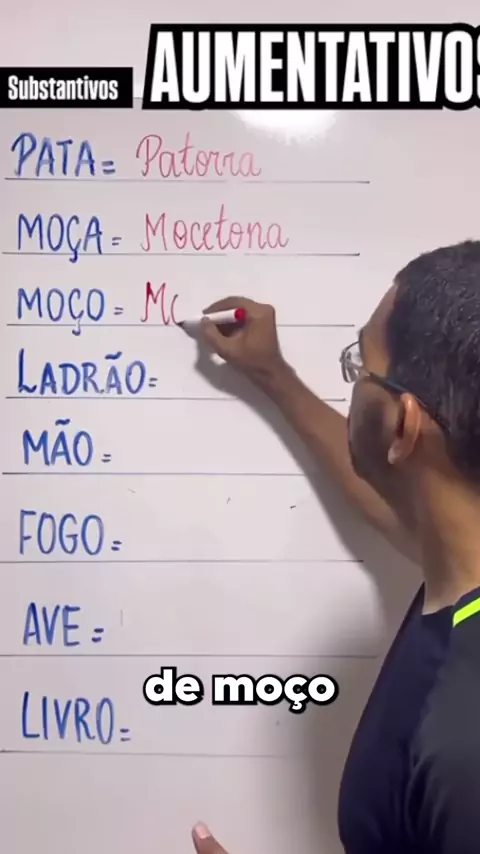 Substantivos AUMENTATIVOS
PATA= Patorra
MOÇA= Mocetona
MOÇO= Mo
LADRÃO=
MÃO=
FOGO=
AVE=
de moço
LIVRO=